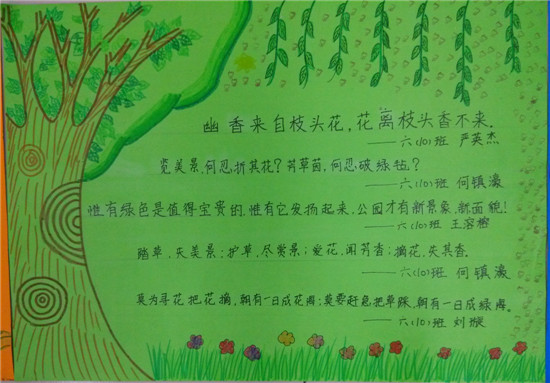 幽香来自枝头花，花离枝头香不来。
——六(10)班 严英杰
览美景，何忍折其花？芳草茵，何忍破绿毡？
——六(10)班 何镇濠
惟有绿色是值得宝贵的，惟有它发扬起来，公园才有新景象，新面貌！
——六(10)班 王容榕
踏草，失美景；护草，尽赏景；爱花，闻芳香；摘花，失其香。
——六(10)班 何镇濠
莫为寻花把花摘，朝有一日成花海；莫要赶急把草踩，朝有一日成绿海。
——六(10)班 刘